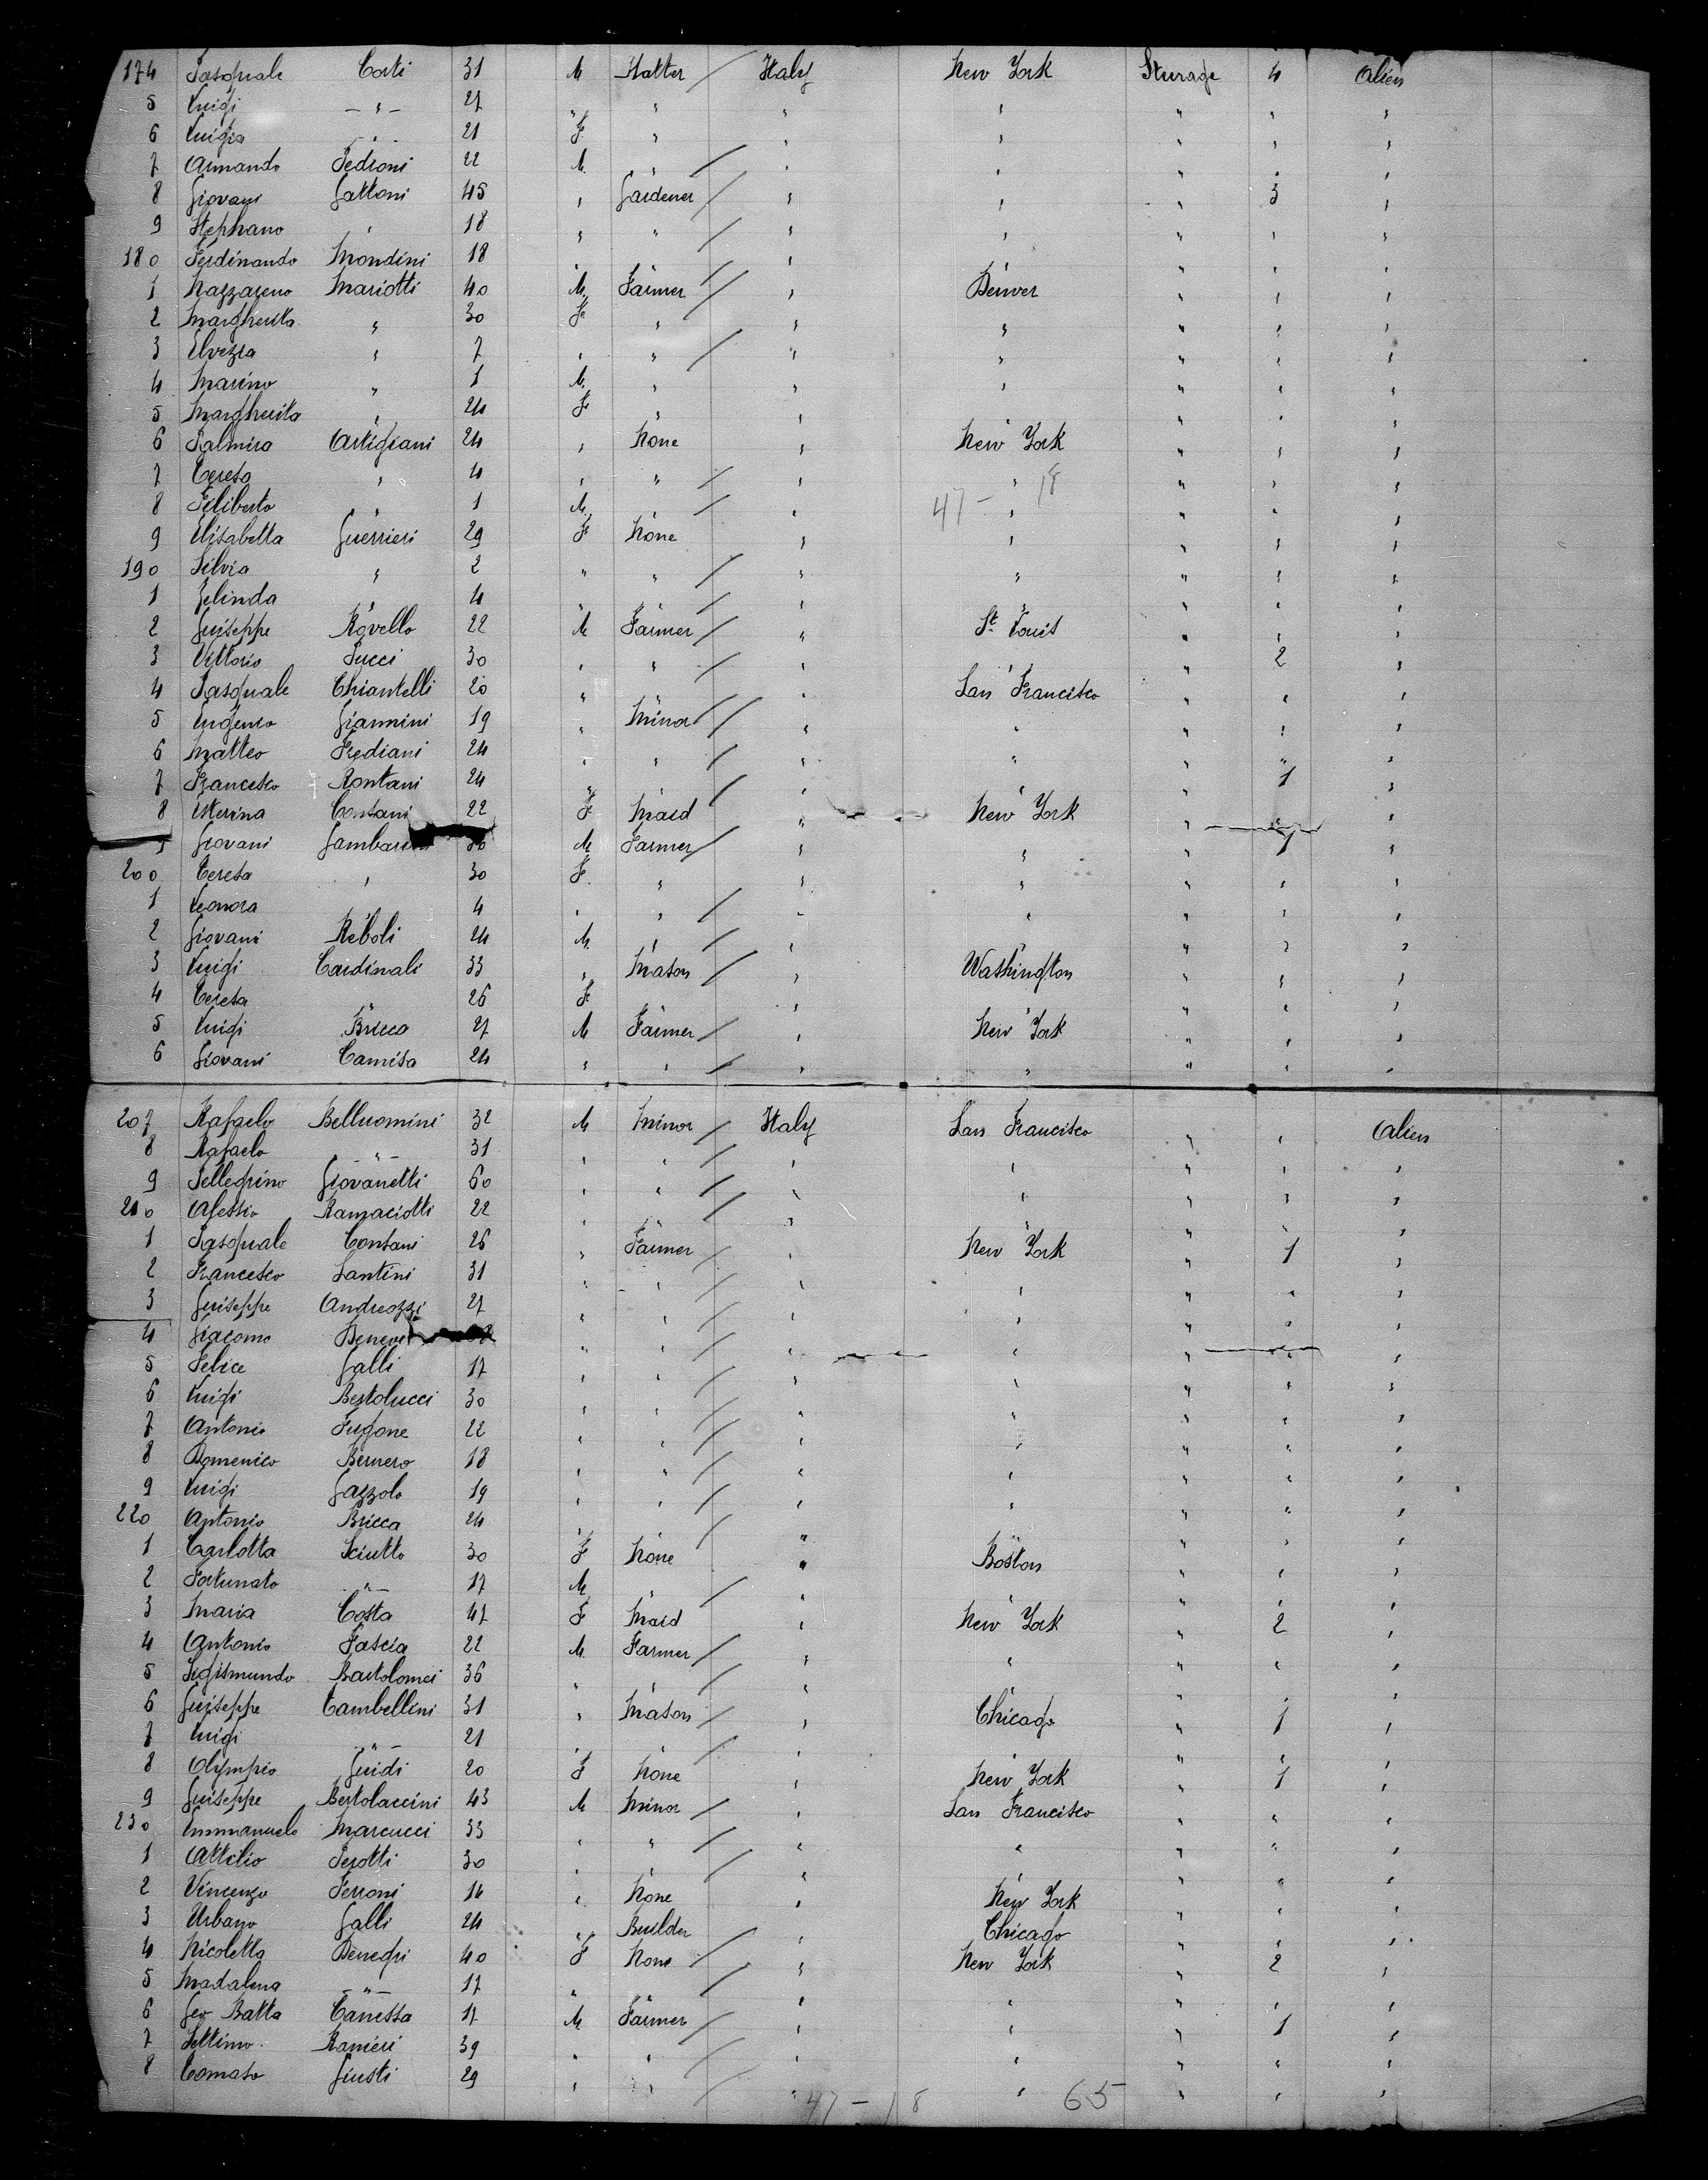 174 Pasquale Corti 31 M Hatter / Italy New York Sturage 4 Alien
5 Luigi — " — 27 " " " " " " "
6 Luigia — " — 21 F " " " " " "
7 Armando Pedroni 22 M. " / " " " " "
8 Giovani Gattoni 45 " Gardener / " " " 3 "
9 Stephano " 18 " " / " " " " "
180 Ferdinando Mondini 18 " " / " " " " "
1 Nazzareno Mariotti 40 M. Farmer / " Denver " " "
2 Margherita " 30 F. " " " " " "
3 Elvezia " 7 " " / " " " " "
4 Marino " 1 M. " " " " " "
5 Margherita " 24 F " " " " " "
6 Palmira Artigiani 24 " None " New York " " "
7 Tereso " 4 " " / " " " " "
8 Filiberto " 1 M. " / " " " " "
47 — 18
9 Elisabetta Guerrieri 29 F None " " " " "
190 Silvia " 2 " " / " " " " "
1 Zelinda " 4 " " / " " " " "
2 Guiseppe Rovello 22 M Farmer / " St. Louis " " "
3 Vittorio Pucci 30 " " / " " " 2 "
4 Pasquale Chiantelli 20 " " / " San Francisco " " "
5 Eugenio Giannini 19 " Minor / " " " " "
6 Matteo Frediani 24 " " / " " " " "
7 Francesco Rontani 24 " " / " " " 1 "
8 Sterina Contani 22 F Maid " New York " " "
9 Giovani Gambarini 30 M Farmer / " " " 1 "
200 Teresa " 30 F. " " " " " "
1 Leonora " 4 " " / " " " " "
2 Giovani Reboli 24 M. " / " " " " "
3 Luigi Cardinali 33 " Mason / " Washington " " "
4 Teresa " 26 F " " " " " "
5 Luigi Bricco 27 M Farmer / " New York " " "
6 Giovani Camisa 24 " " / " " " " "
207 Rafaelo Belluomini 32 M Minor / Italy San Francisco " " Alien
8 Rafaelo — " — 31 " " / " " " " "
9 Pellegrino Giovanetti 60 " " / " " " " "
210 Alessio Ramaciotti 22 " " / " " " " "
1 Pasquale Contani 26 " Farmer / " New York " 1 "
2 Francesco Santini 31 " " / " " " " "
3 Guiseppe Andreozzi 27 " " / " " " " "
4 Giacomo " " / " " " " "
5 Felice Galli 17 " " / " " " " "
6 Luigi Bertolucci 30 " " / " " " " "
7 Antonio Fugone 22 " " / " " " " "
8 Domenico Bernero 18 " " / " " " " "
9 Luigi Gazzolo 19 " " / " " " " "
220 Antonio Bricca 24 " " / " " " " "
1 Carlotta Sciutto 30 F None " Boston " " "
2 Fortunato — " — 17 M. " / " " " " "
3 Maria Costa 47 F Maid " New York " 2 "
4 Antonio Fascia 22 M. Farmer / " " " " "
5 Sigismundo Bartolomei 36 " " / " " " " "
6 Guiseppe Tambellini 31 " Mason / " Chicago " 1 "
7 Luigi — " — 21 " " / " " " " "
8 Olympio Guidi 20 F None " New York " 1 "
9 Guiseppe Bertolaccini 43 M Minor / " San Francisco " " "
230 Emmanuele Marcucci 33 " " / " " " " "
1 Attilio Perotti 30 " " / " " " " "
2 Vincenzo Ferroni 16 " None " New York " " "
3 Urbano Galli 24 " Builder / " Chicago " " "
4 Nicoletta Denegri 40 F None / " New York " 2 "
5 Madalena — " — 17 " " / " " " " "
6 Geo Batta Canessa 17 M. Farmer / " " " 1 "
7 Settimo Ranieri 39 " " / " " " " "
8 Tomaso Giusti 29 " " / " " " " "
47 — 18 65